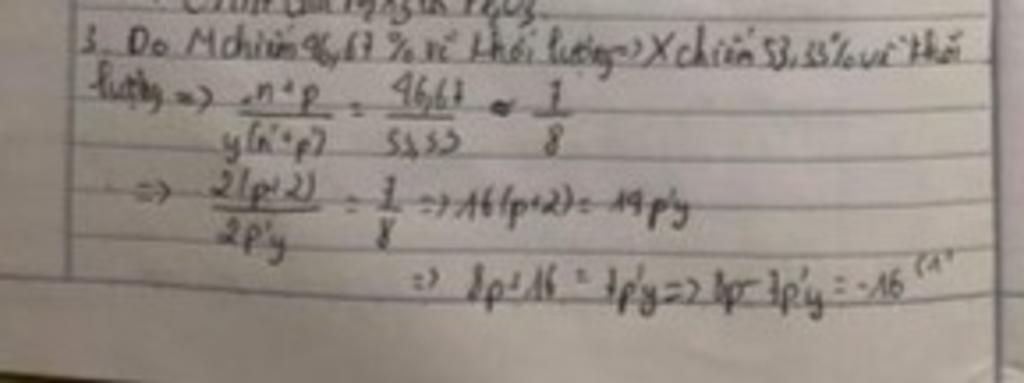 3. Do M chiếm 46,67 % về khối lượng => X chiếm 53,33% về khối
lượng => n+p / y(n'+p') = 46,67 / 53,33 = 7 / 8
=> 2(p+2) / 2p'y = 7 / 8 => 16(p+2) = 14p'y
=> 8p+16 = 7p'y => 8p - 7p'y = -16 (1)